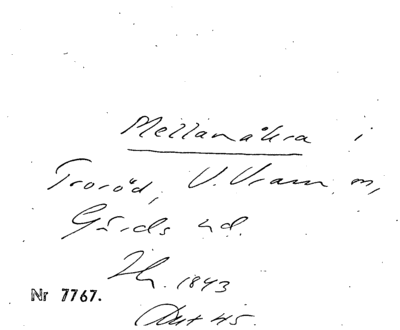 Mellanåkra i
Troröd, V. Vram m,
Gärds hd.
1843
Nr 7767.
45.